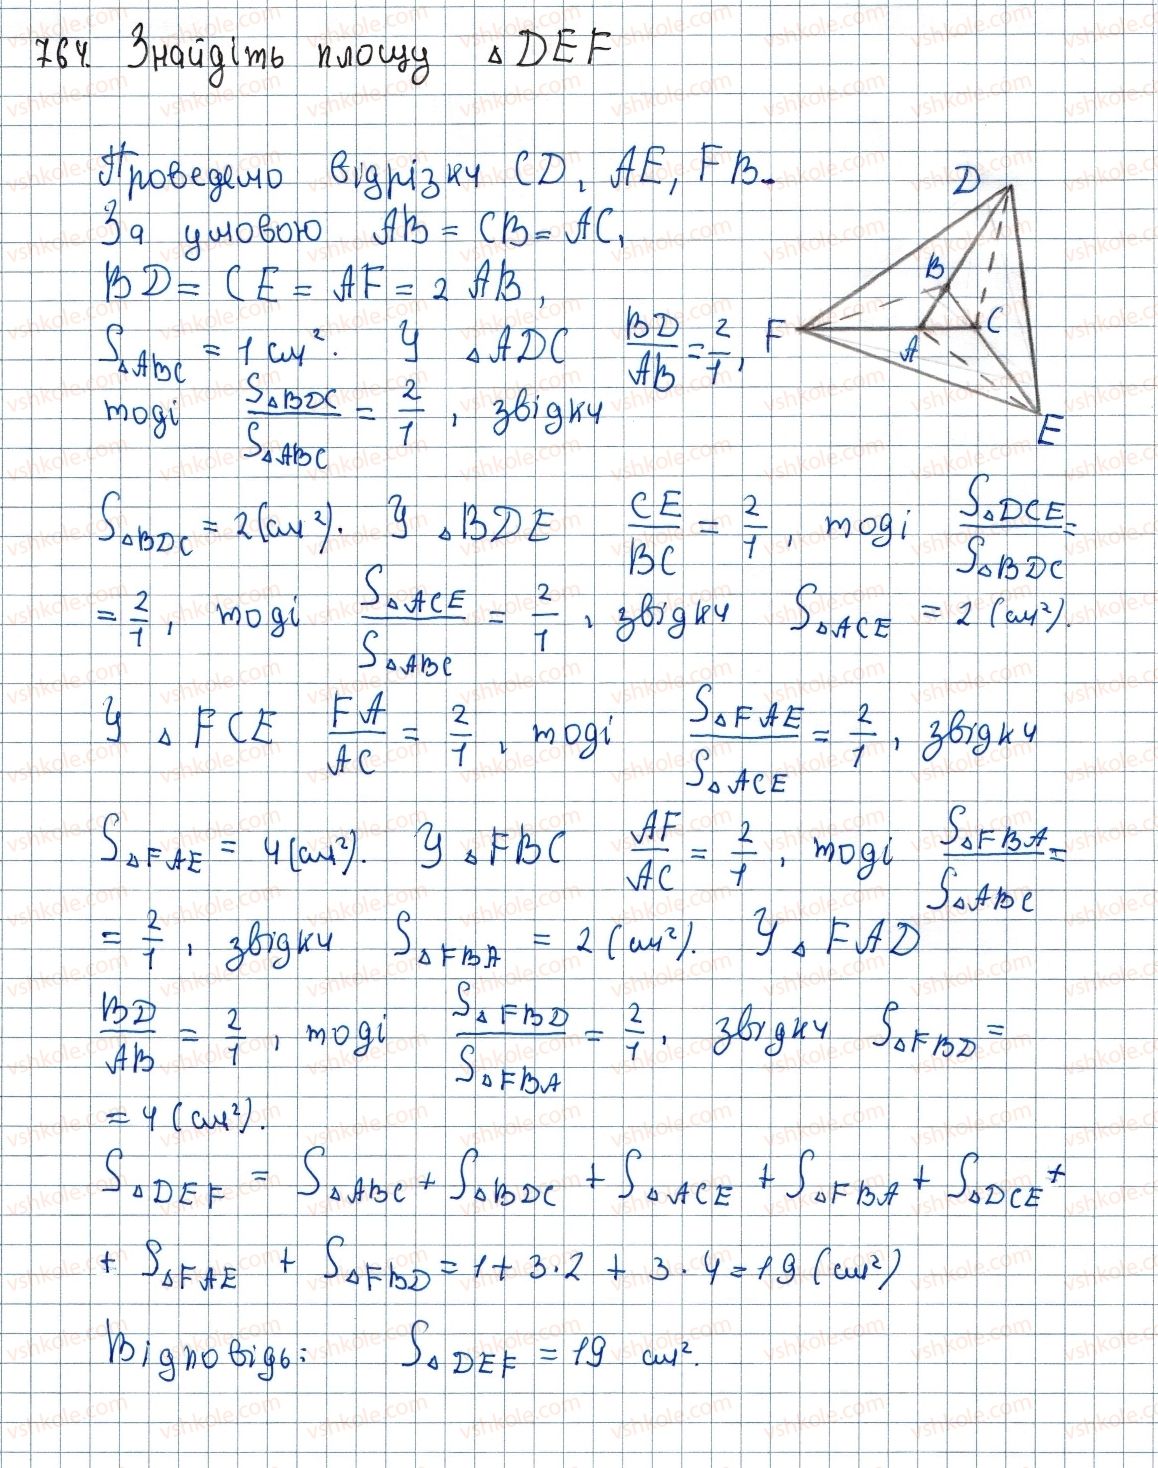 764. Знайдіть площу △DEF
Проведемо відрізки CD, AE, FB.
За умовою AB = CB = AC,
BD = CE = AF = 2 AB,
S△ABC = 1 см². У △ADC BD/AB = 2/1,
тоді S△BDC/S△ABC = 2/1, звідки
D
B
F
A
C
E
S△BDC = 2 (см²). У △BDE CE/BC = 2/1, тоді S△DCE/S△BDC =
= 2/1, тоді S△ACE/S△ABC = 2/1, звідки S△ACE = 2 (см²).
У △FCE FA/AC = 2/1, тоді S△FAE/S△ACE = 2/1, звідки
S△FAE = 4 (см²). У △FBC AF/AC = 2/1, тоді S△FBA/S△ABC =
= 2/1, звідки S△FBA = 2 (см²). У △FAD
BD/AB = 2/1, тоді S△FBD/S△FBA = 2/1, звідки S△FBD =
= 4 (см²).
S△DEF = S△ABC + S△BDC + S△ACE + S△FBA + S△DCE +
+ S△FAE + S△FBD = 1 + 3·2 + 3·4 = 19 (см²)
Відповідь: S△DEF = 19 см².